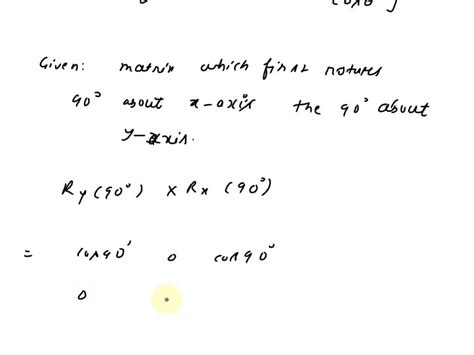 Given: matrix which first rotates
90° about x-axis the 90° about
y-axis.
Ry(90°) x Rx(90°)
= cos90° 0 cos90°
0